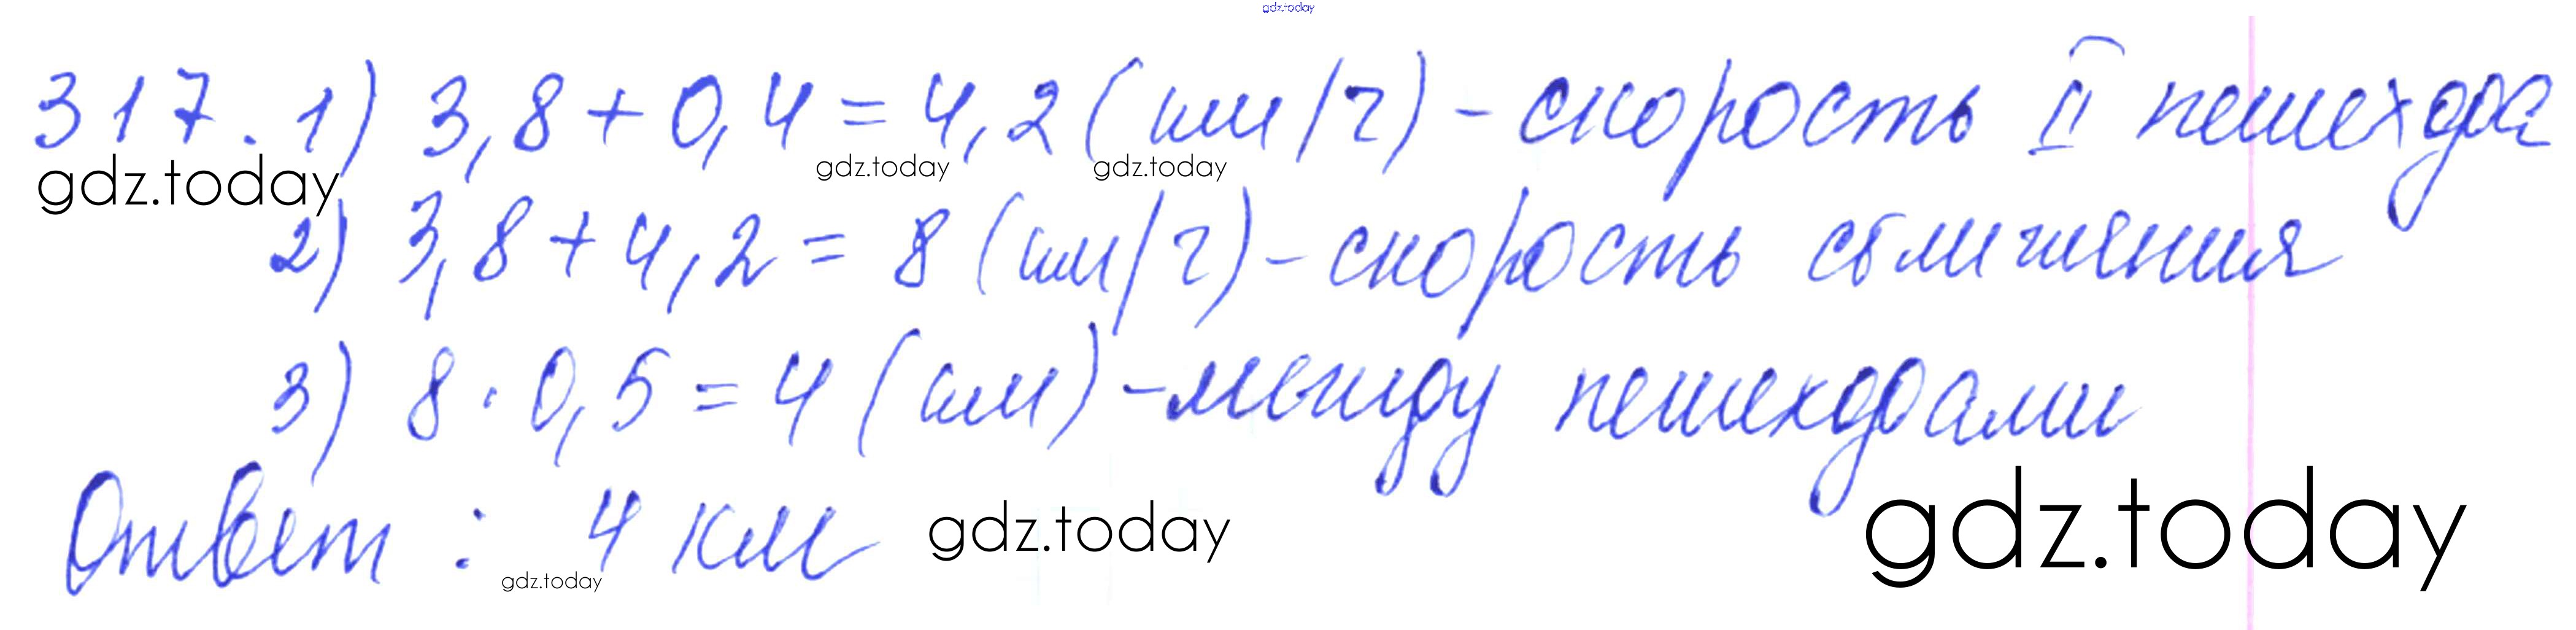 gdz.today
317. 1) 3,8 + 0,4 = 4,2 (км/ч) - скорость II пешехода
gdz.today gdz.today gdz.today
2) 3,8 + 4,2 = 8 (км/ч) - скорость сближения
3) 8 · 0,5 = 4 (км) - между пешеходами
Ответ : 4 км
gdz.today gdz.today
gdz.today